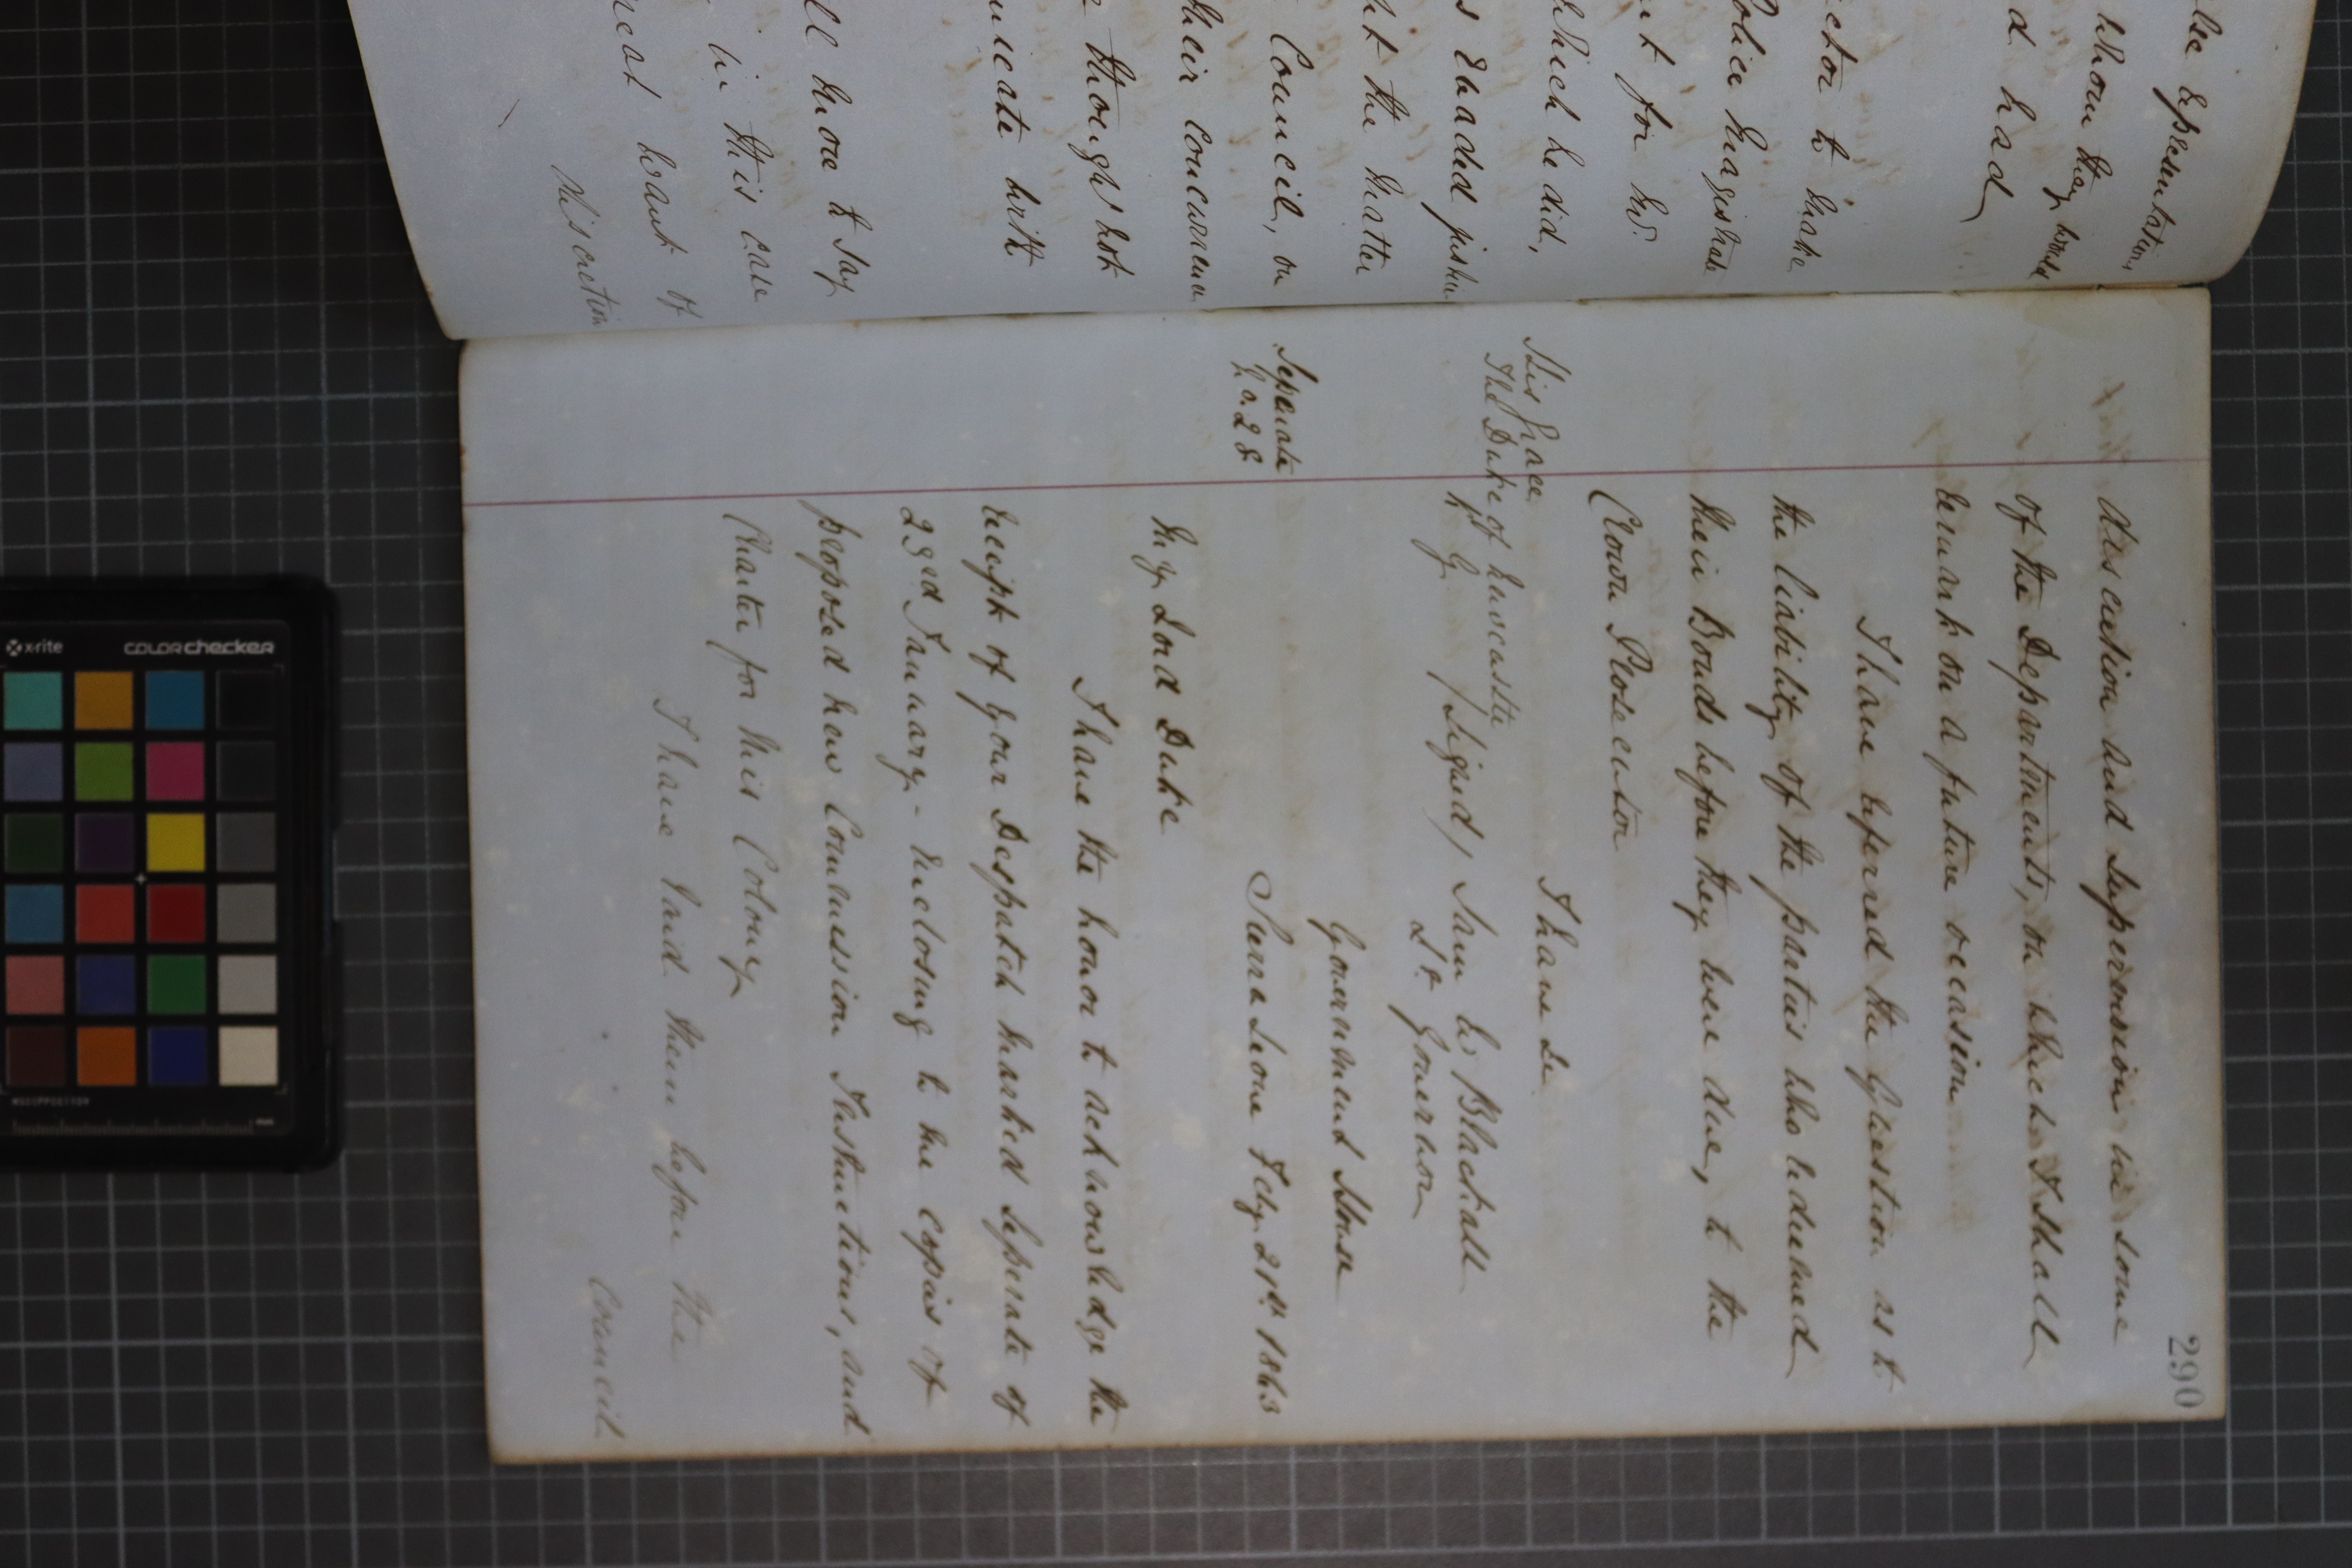 lic
whom they would
d had
ctor to make
Police Magistrate
nt for Mr.
which he did,
s evaded justice
nt the matter
Council, on
their concurrence
though not
unicate with
ll more to say
in this case
reat want of
discretion
290
discretion and supervision in some
of the Departments, on which I shall
remark on a future occasion
I have referred the Question as to
the liability of the parties who redeemed
their Bonds before they were due, to the
Crown Prosecutor
I have &c
His Grace
The Duke of Newcastle
K. G.
(Signed) Sam W. Blackall
Lt. Governor
Government House
Separate
No. 28
Sierra Leone Feby. 21st 1863
My Lord Duke
I have the honor to acknowledge the
receipt of your Despatch marked Seperate of
23rd January - enclosing to me copies of
proposed new Commission Instructions, and
Charter for this Colony
I have laid them before the
Council
x-rite
colorchecker